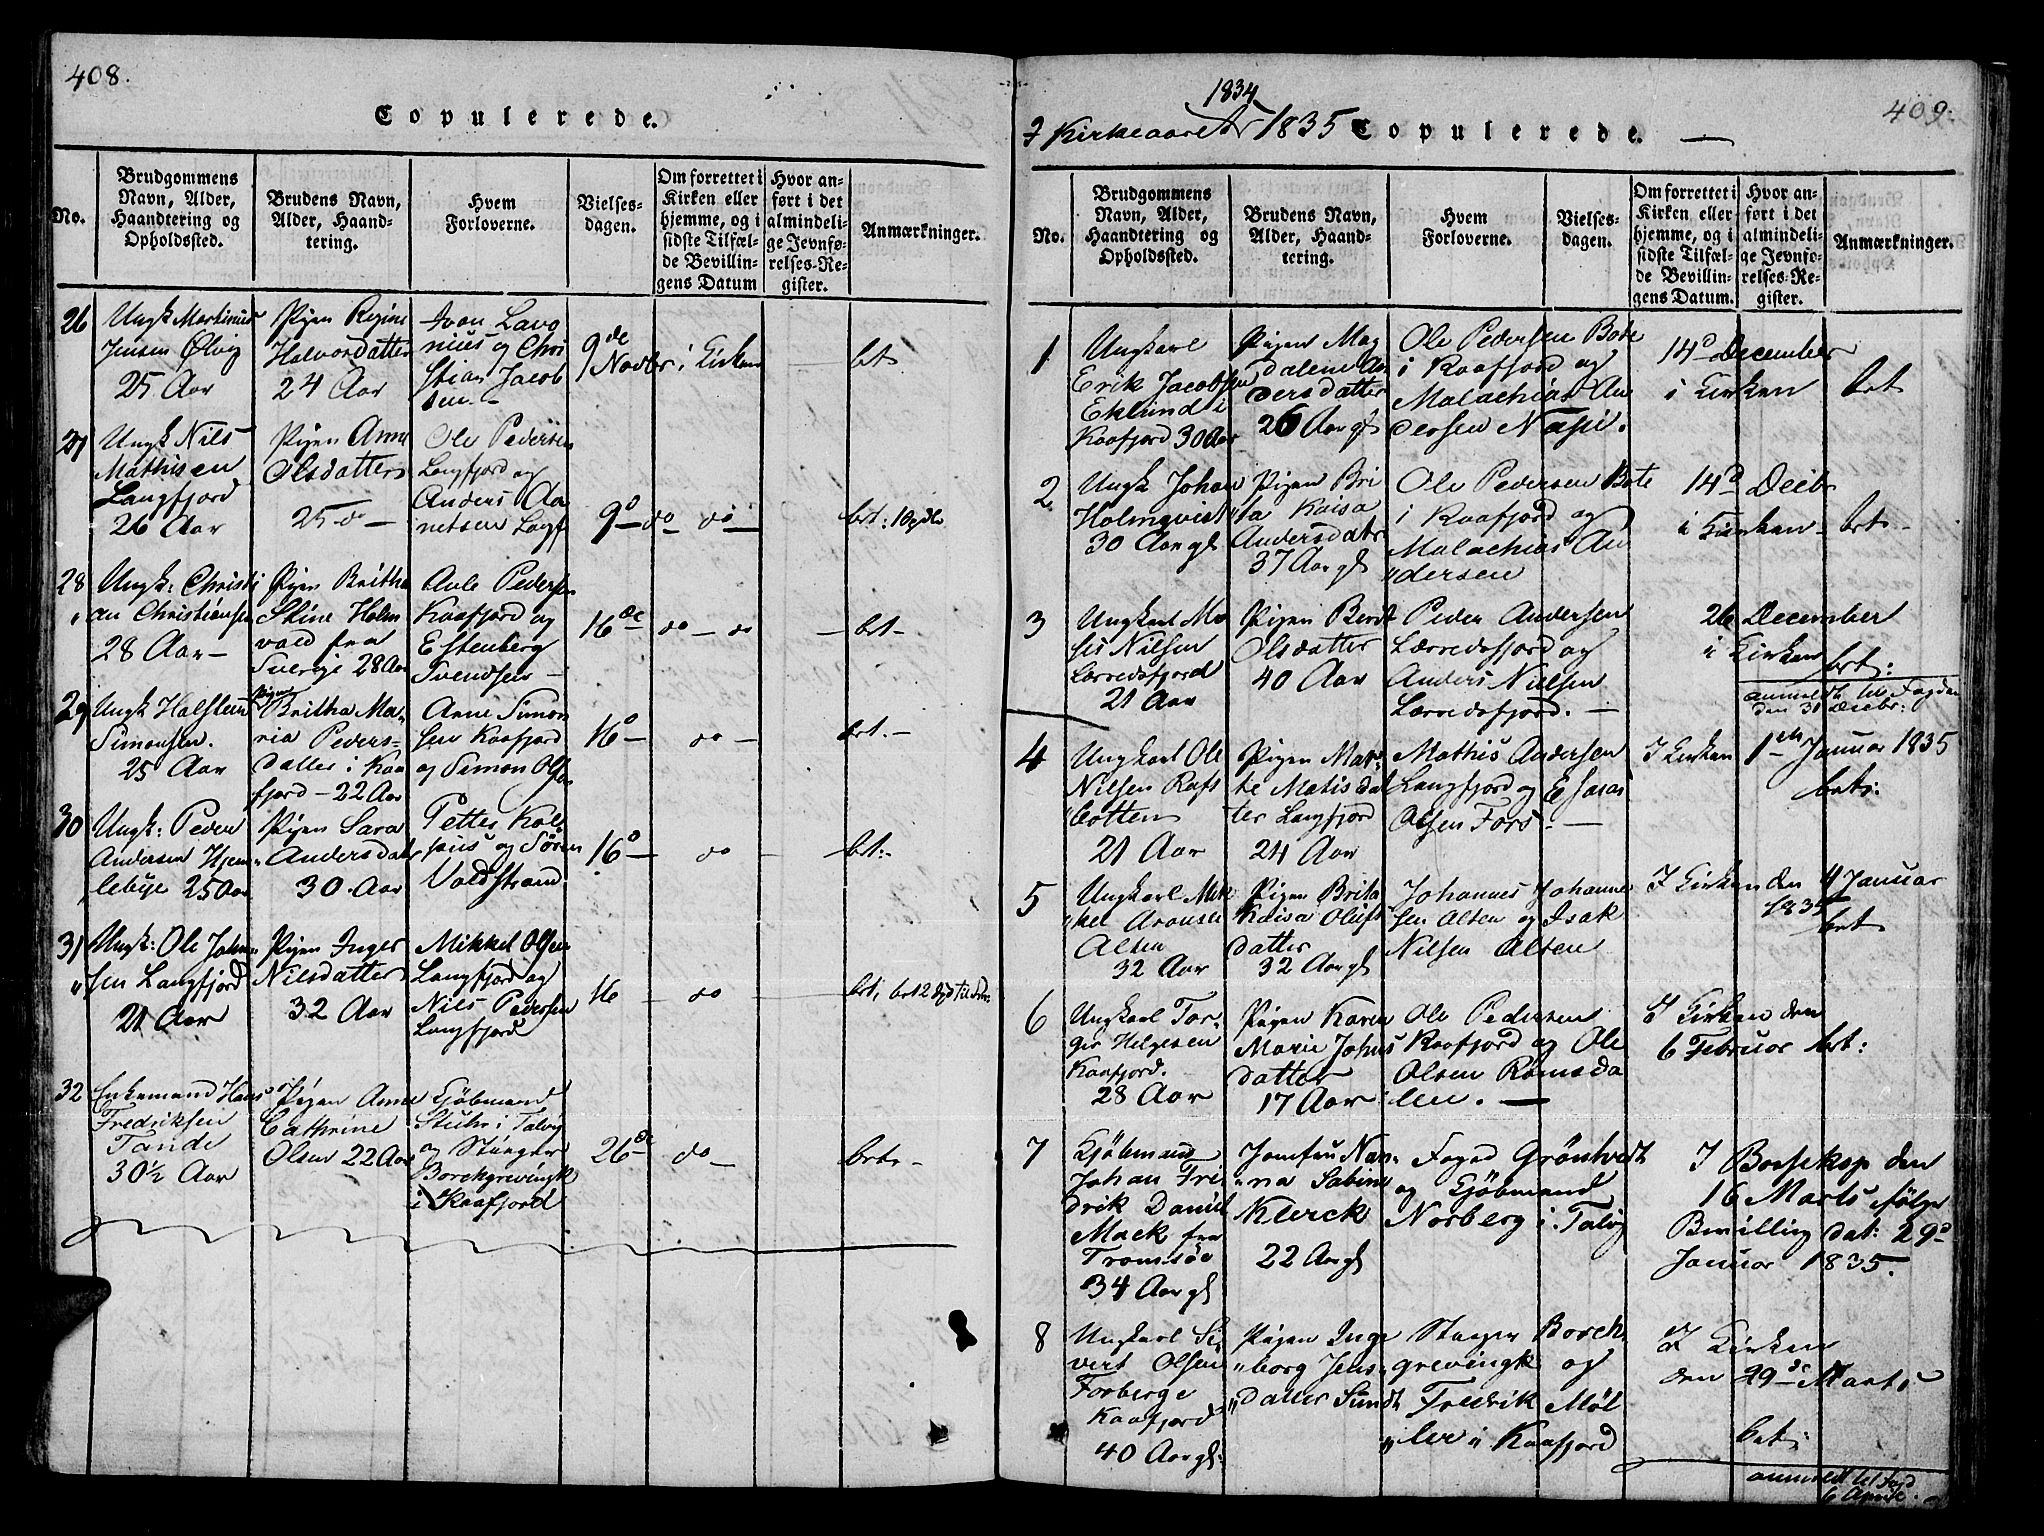 408.
Copulerede.
No.
Brudgommens Navn, Alder, Haandtering og Opholdssted.
Brudens Navn, Alder, Haandtering.
Hvem Forloverne.
Vielsesdagen.
Om forrettet i Kirken eller hjemme, og i sidste Tilfælde Bevillingens Datum
Hvor anført i det almindelige Jevnførelses-Register.
Anmærkninger.
26
Ungk Martinus
Jensen Ølvig
25 Aar
Pigen Regine
Halvorsdatter
24 Aar
Ivan Lavo
nius og Chri
stian Jacob
sen.
9de
Novbr
i Kirken
brt
27
Ungk Nils
Mathisen
Langfjord
26 Aar
Pigen Anne
Olsdatter
25 do
Ole Pedersen
Langfjord og
Anders Aa
netsen Langf
9
do do
brt:
28
Ungk: Christi
an Christiansen
28 Aar
Pigen Britha
Stine Holm
vald fra
Sverige 28 Aar
Avle Pedersen
Kaafjord og
Estenberg
Svendsen
16de
do do
brt
29
Ungk Halsteen
Simonsen.
25 Aar
Pigen
Britha Ma
ria Peders
datter i Kaa
fjord 22 Aar
Arne Simon
sen Kaafjord
og Simon Olsen
16
do
brt.
30
Ungk: Peder
Andersen Hjem
lebye 25 Aar
Pigen Sara
Andersdatr
30 Aar
Petter Kol
pus og Søren
Voldstrand.
16
do
brt:
31
Ungk: Ole John
sen Langfjord
21 Aar
Pigen Inger
Nilsdatter
32 Aar
Mikkel Olsen
Langfjord og
Nils Pedersen
Langfjord
16
do
brt,
32
Enkemand Hans
Fredriksen
Tande
30½ Aar
Pigen Anne
Cathrine
Olsen 22 Aar
Kjøbmand
Stuhr i Talvig
og Stuager
Borchgrevingk
i Kaafjord
26de
do
brt
1834
I Kirkeaaret 1835 Copulerede.
409.
No.
Brudgommens Navn, Alder, Haandtering og Opholdssted.
Brudens Navn, Alder, Haandtering.
Hvem Forloverne.
Vielsesdagen.
Om forrettet i Kirken eller hjemme, og i sidste Tilfælde Bevillingens Datum.
Hvor anført i det almindelige Jevnførelses-Register.
Anmærkninger.
1
Ungkarl
Erik Jacobsen
Eklund i
Kaafjord 30 Aar
Pigen Mag
dalene An
dersdatter
26 Aar gl
Ole Pedersen Bote
i Kaafjord og
Malachias An
dersen Nasi.
14 December
i Kirken
brt
2
Ungk Johan
Holmqvist
30 Aar gl
Pigen Bri
ta Kaisa
Andersdatr
37 Aar gl
Ole Pedersen Bote
i Kaafjord og
Malachias An
dersen
14 Decbr
i Kirken
brt
3
Ungkarl Mo
ses Nilsen
Lærredsfjord
21 Aar
Pigen Berit
Olsdatter
40 Aar
Peder Andersen
Lærredsfjord og
Anders Nielsen
Lærredsfjord.
26 December
i Kirken
brt:
anmeldt til Fogden
den 31 Decbr:
4
Ungkarl Ole
Nilsen Rafs
botten
21 Aar
Pigen Mar
te Matisdat
ter Langfjord
24 Aar
Mathis Andersen
Langfjord og Esaias
Olsen Fors.
I Kirken 1 Januar 1835
brt:
5
Ungkarl Mik
kel Aronsen
Alten
32 Aar
Pigen Brita
Kaisa Olufs
datter
32 Aar gl
Johannes Johanne
sen Alten og Isak
Nilsen Alten
I Kirken den 4 Januar
1835
brt
6
Ungkarl Tor
ger Helgesen
Kaafjord.
28 Aar
Pigen Karen
Marie Johns
datter
17 Aar
Ole Pedersen
Kaafjord og Ole
Olsen Romsda
len.
I Kirken den
6 Februar brt:
7
Kjøbmand
Johan Fri
drik Daniel
Mack fra
Tromsøe
34 Aar gl
Jomfru Nan
na Sabine
Klerck
22 Aar gl
Foged Grønhvedt
og Kjøbmand
Norberg i Talvig
I Bossekop den
16 Marts ifølge
Bevilling dat: 29
Januar 1835.
8
Ungkarl Si
vert Olsen
Forberge
Kaafjord
40 Aar gl:
Pigen Inge
borg Jens
datter Sundt
Stuager Borch
grevingk og
Fredrik Møl
ler i Kaafjord
I Kirken
den 29de Marts
brt:
anmeldt til Fogd
6 April